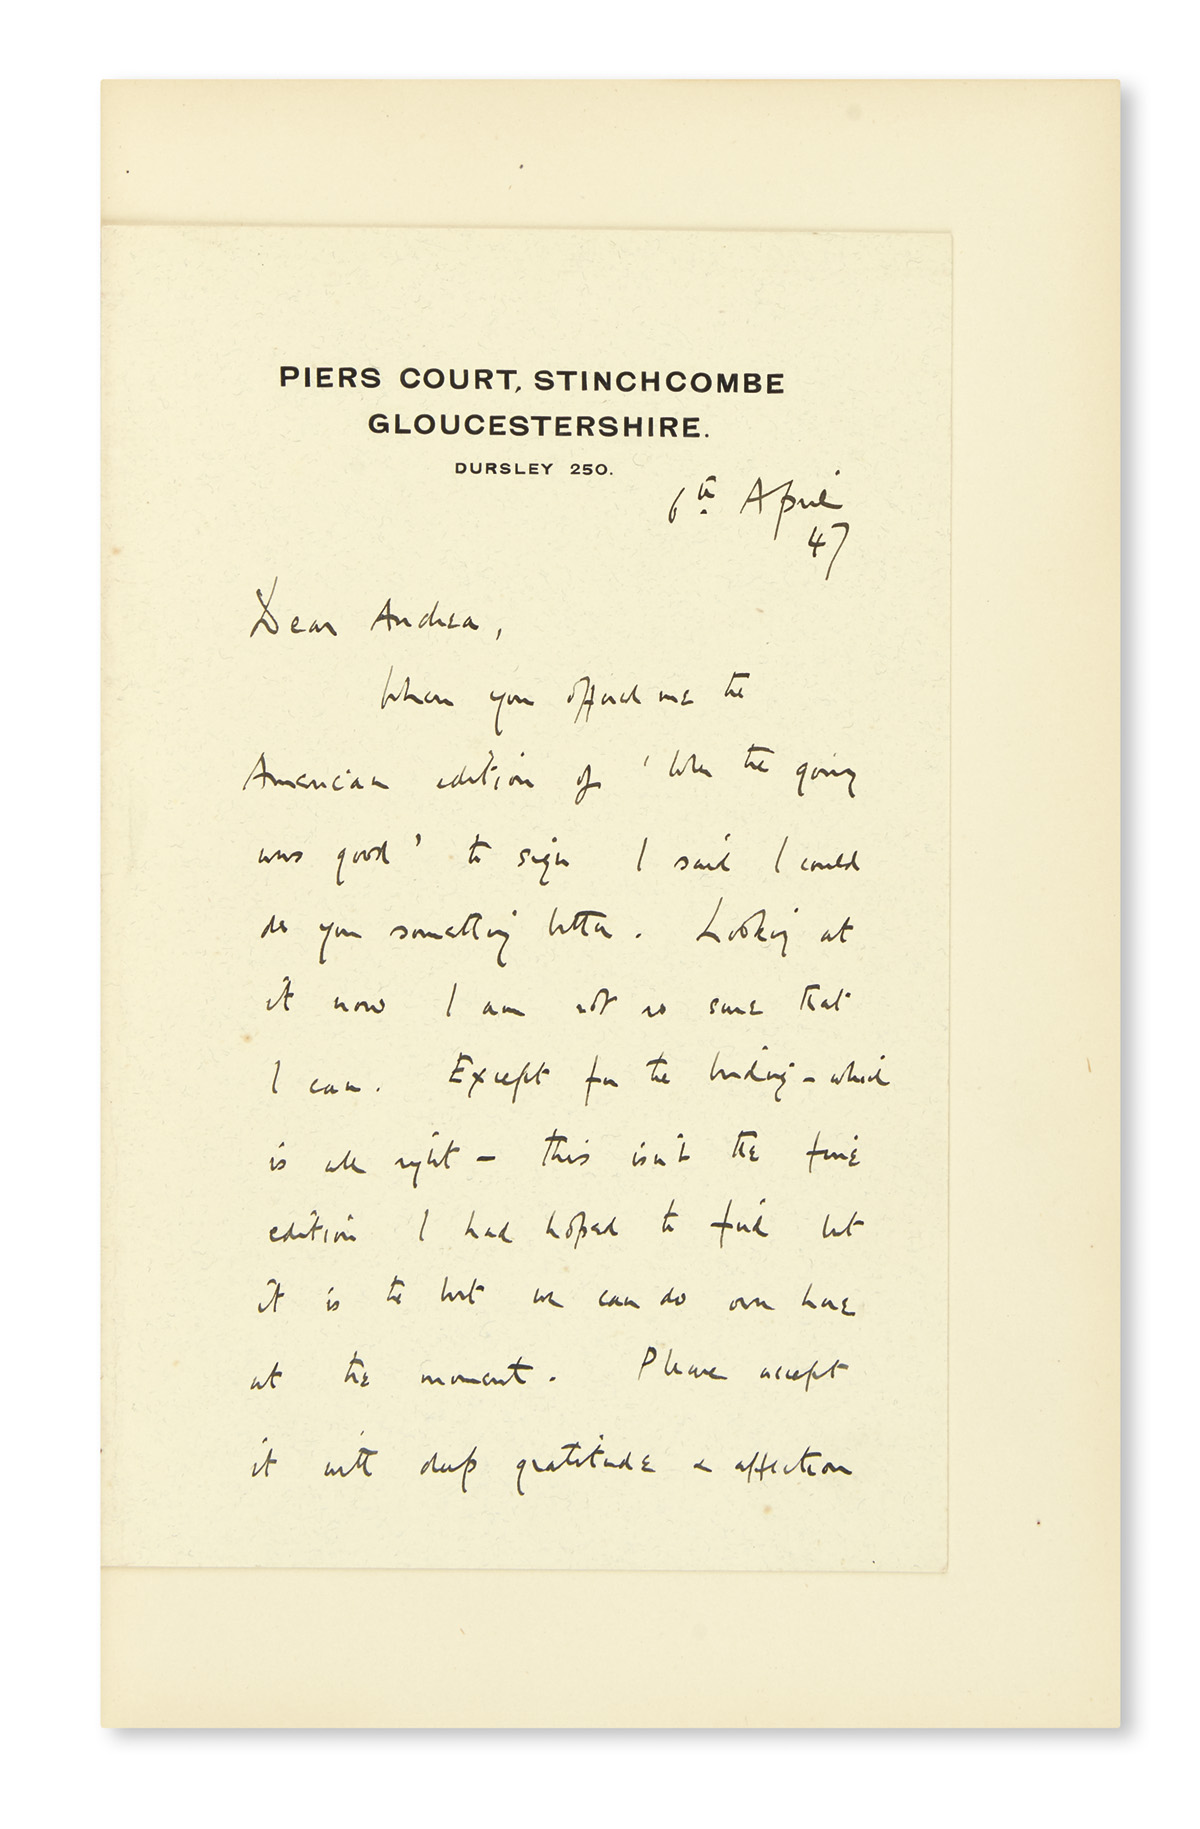 PIERS COURT, STINCHCOMBE
GLOUCESTERSHIRE.
DURSLEY 250.
6th April
47
Dear Andrea,
When you offered me the
American edition of 'When the going
was good' to sign I said I could
do you something better. Looking at
it now I am not so sure that
I can. Except for the binding – which
is all right – this isn't the fine
edition I had hoped to find but
it is the best we can do over here
at the moment. Please accept
it with deep gratitude & affection